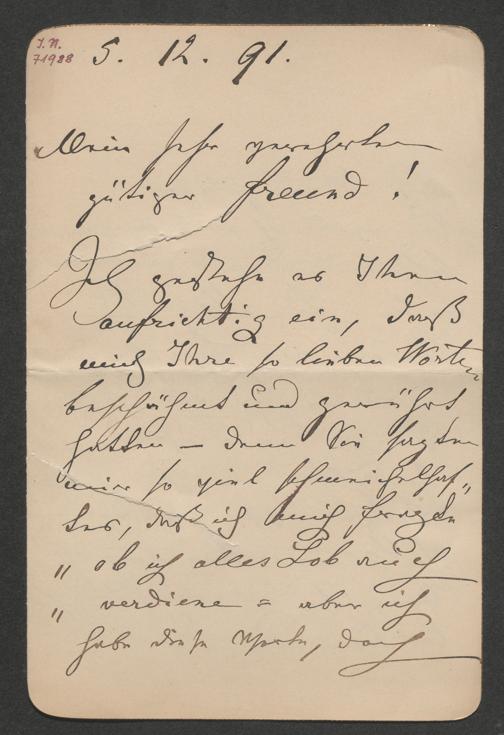 I. N.
71988
5. 12. 91.
Mein sehr verehrter
gütiger Freund!
Ich gestehe es Ihnen
aufrichtig ein, daß
mich Ihre so lieben Worte
beschähmt und gerührt
hatten – denn Sie sagten
mir so viel schmeichelhaf„
tes, daß ich mich fragte
„ ob ich alles Lob auch
„ verdiene = aber ich
habe diese Worte, doch